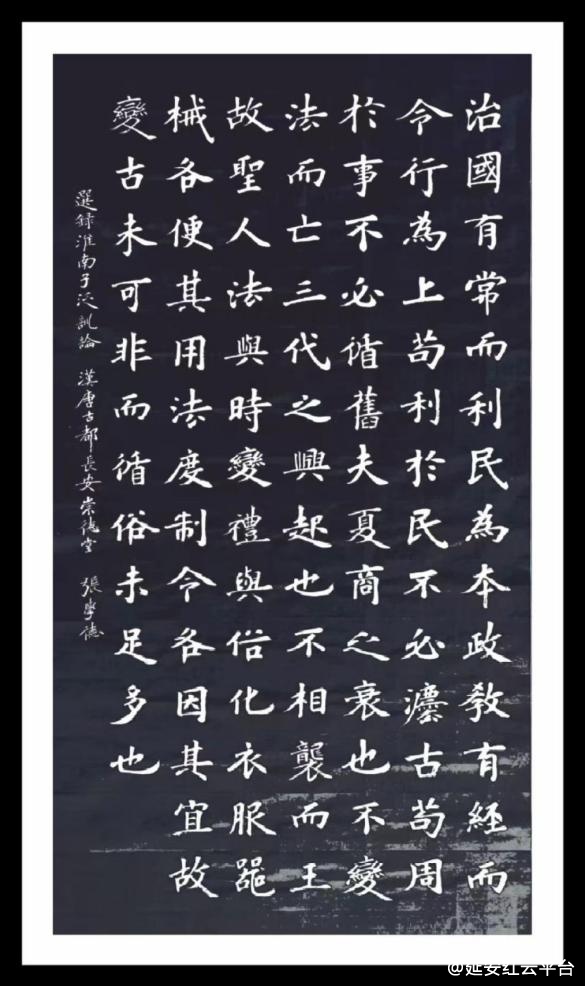 治國有常而利民為本政教有經而
令行為上苟利於民不必灋古苟周
於事不必循舊夫夏商之衰也不變
法而亡三代之興起也不相襲而王
故聖人法與時變禮與俗化衣服器
械各便其用法度制令各因其宜故
變古未可非而循俗未足多也
選録淮南子泛訓論 漢唐古都長安崇德堂 張學德
@延安红云平台